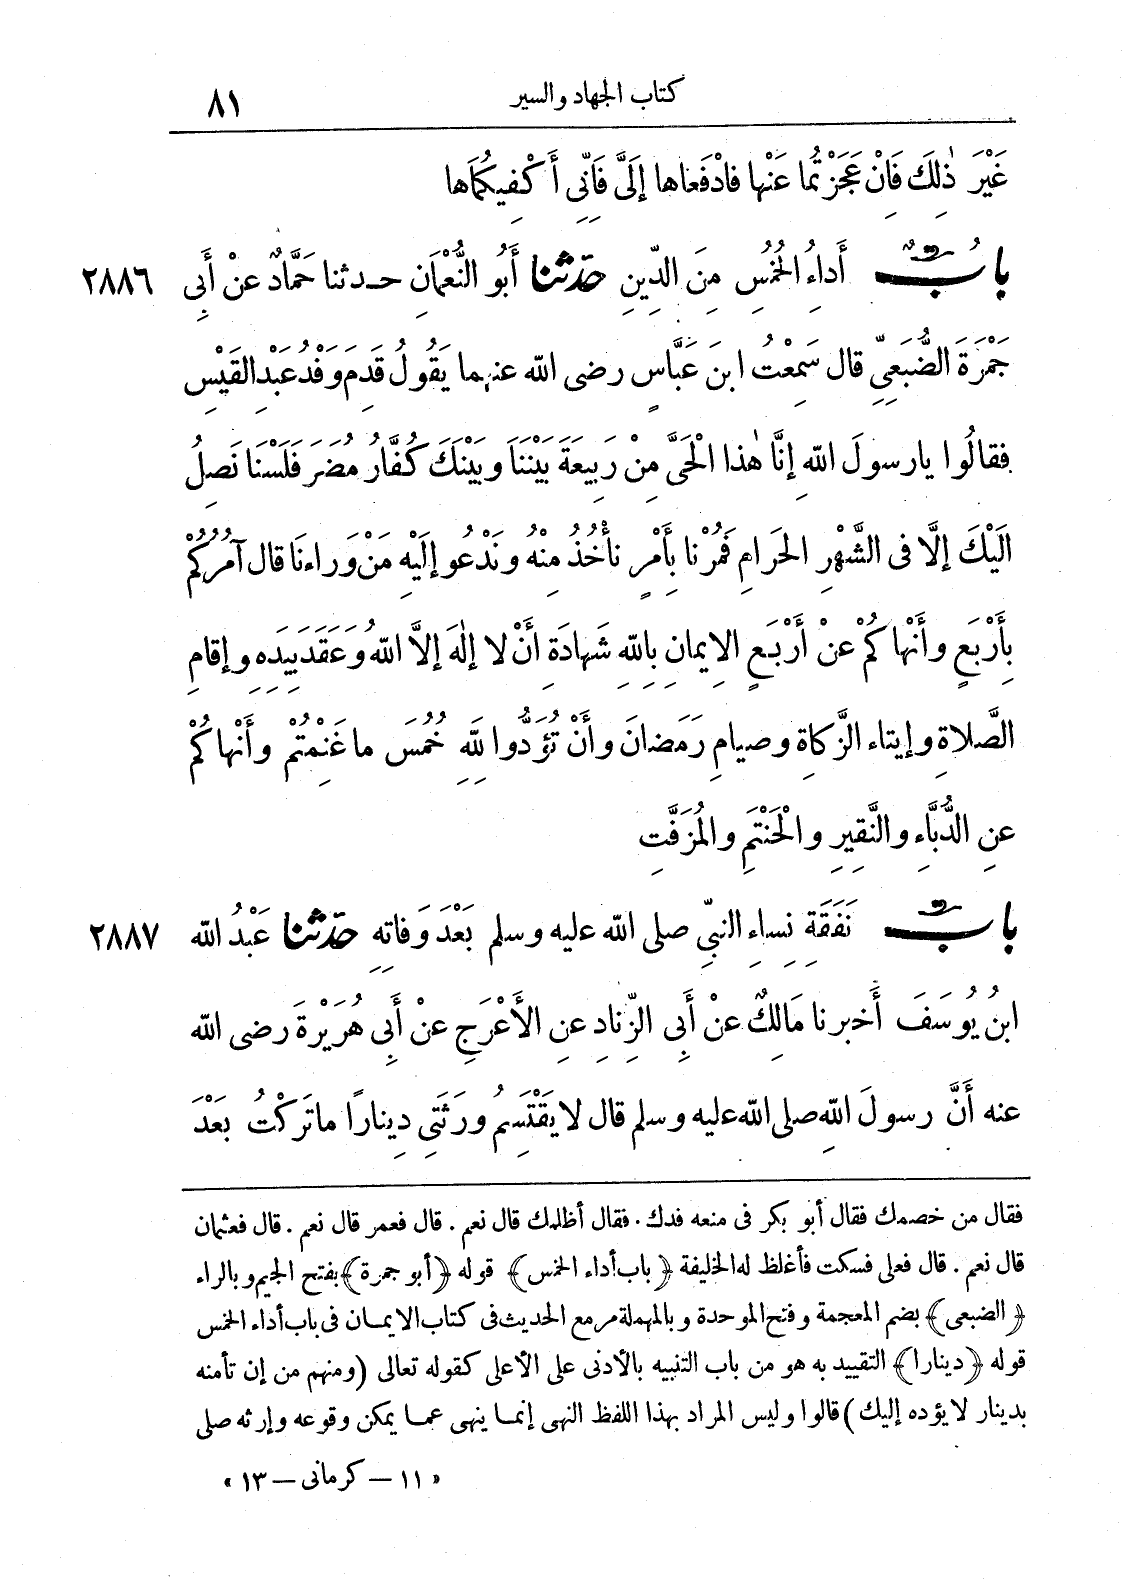 كتاب الجهاد والسير ٨١
غَيْرَ ذٰلِكَ فَانْ عَجَزْتُمَا عَنْها فادْفَعاها إلَىَّ فَانِّى أَكْفِيكُمَاها
بابٌ أَداءُ الْخُمُسِ مِنَ الدِّينِ حدّثنا أَبُو النُّعْمَانِ حدثنا حَمَّادٌ عنْ أَبِى ٢٨٨٦
جَمْرَةَ الضُّبَعِىِّ قال سَمِعْتُ ابنَ عَبَّاسٍ رضى الله عنهما يَقُولُ قَدِمَ وَفْدُ عَبْدِ القَيْسِ
فقالُوا يارسولَ اللهِ إنَّا هٰذا الْحَىَّ مِنْ رَبِيعَةَ بَيْنَنَا وبَيْنَكَ كُفَّارُ مُضَرَ فَلَسْنَا نَصِلُ
الَيْكَ إلَّا فى الشَّهْرِ الحَرامِ فَمُرْنا بِأَمْرٍ نأْخُذُ مِنْهُ ونَدْعُو إلَيْهِ مَنْ وَراءنَا قال آمُرُكُمْ
بِأَرْبَعٍ وأَنْهاكُمْ عنْ أَرْبَعٍ الإيمانِ بِاللهِ شَهادَةِ أَنْ لا إلٰهَ إلاَّ اللهُ وَعَقَدَ بِيَدِهِ وإقامِ
الصَّلاةِ وإيتاء الزَّكاةِ وصيامِ رَمَضانَ وأَنْ تُؤَدُّوا لِلّهِ خُمُسَ ما غَنِمْتُمْ وأَنْهاكُمْ
عنِ الدُّبَّاءِ والنَّقِيرِ والْحَنْتَمِ والمُزَفَّتِ
بابُ نَفَقَةِ نِساءِ النبىِّ صلى الله عليه وسلم بَعْدَ وَفاتِهِ حدّثنا عَبْدُ الله ٢٨٨٧
ابنُ يُوسَفَ أَخبرنا مَالِكٌ عنْ أَبِى الزِّنادِ عنِ الأَعْرَجِ عنْ أَبِى هُرَيْرةَ رضى الله
عنه أَنَّ رسولَ اللهِ صلى الله عليه وسلم قال لا يَقْتَسِمُ ورَثَتِى دِينارًا ماتَرَكْتُ بَعْدَ
فقال من خصمك فقال أبو بكر فى منعه فدك. فقال أظلمك قال نعم. قال فعمر قال نعم. قال فعثمان
قال نعم. قال فعلى فسكت فأغلظ له الخليفة ﴿باب أداء الخمس﴾ قوله ﴿أبو جمرة﴾ بفتح الجيم وبالراء
﴿الضبعى﴾ بضم المعجمة وفتح الموحدة وبالمهملة مر مع الحديث فى كتاب الايمان فى باب أداء الخمس
قوله ﴿دينارا﴾ التقييد به هو من باب التنبيه بالأدنى على الأعلى كقوله تعالى (ومنهم من إن تأمنه
بدينار لا يؤده إليك) قالوا وليس المراد بهذا اللفظ النهى إنما ينهى عما يمكن وقوعه وإرثه صلى
«١١ – كرمانى – ١٣»